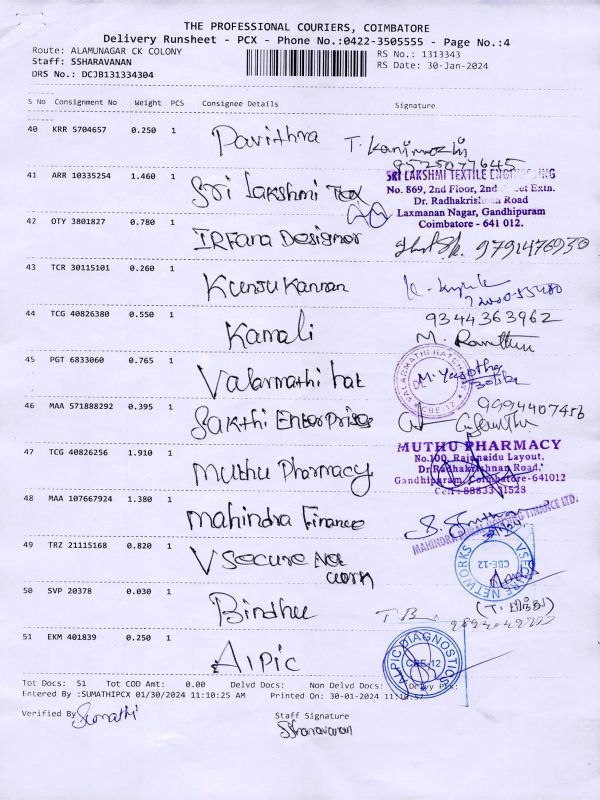 THE PROFESSIONAL COURIERS, COIMBATORE
Delivery Runsheet - PCX - Phone No.:0422-3505555 - Page No.:4
Route: ALAMUNAGAR CK COLONY
RS No.: 1313343
Staff: SSHARAVANAN
RS Date: 30-Jan-2024
DRS No.: DCJB131334304
S No Consignment No Weight PCS Consignee Details Signature
40 KRR 5704657 0.250 1 Pavithra T. Kanimozhi
8525077645
41 ARR 10335254 1.460 1 Sri Lakshmi Tex
SRI LAKSHMI TEXTILE ENGINEERING
No. 869, 2nd Floor, 2nd Extn.
Dr. Radhakrishnan Road
Laxmanan Nagar, Gandhipuram
Coimbatore - 641 012.
42 OTY 3801827 0.780 1 IRFana Designor 9791476930
43 TCR 30115101 0.260 1 Kunjukannan
44 TCG 40826380 0.550 1 Kamali 9344363962
45 PGT 6833060 0.765 1 Valarmathi hat
VALARMATHI HATCH
CBE-12
46 MAA 571888292 0.395 1 Sakthi Enterprises
47 TCG 40826256 1.910 1 Muthu Pharmacy
MUTHU PHARMACY
No.100, Rajunaidu Layout,
Dr.Radhakrishnan Road,
Gandhipuram, Coimbatore-641012
48 MAA 107667924 1.380 1 Mahindra Finance
MAHINDRA RURAL HOUSING FINANCE LTD.
49 TRZ 21115168 0.820 1 V Secure Net
work
VSECURE NETWORKS
CBE-12
50 SVP 20378 0.030 1 Bindhu T.B.
(T. பிந்து)
51 EKM 401839 0.250 1 AlPic
ALPIC DIAGNOSTICS
CBE-12
Tot Docs: 51 Tot COD Amt: 0.00 Delvd Docs: Non Delvd Docs:
Entered By :SUMATHIPCX 01/30/2024 11:10:25 AM Printed On: 30-01-2024
Verified By Sumathi
Staff Signature
SSharavanan